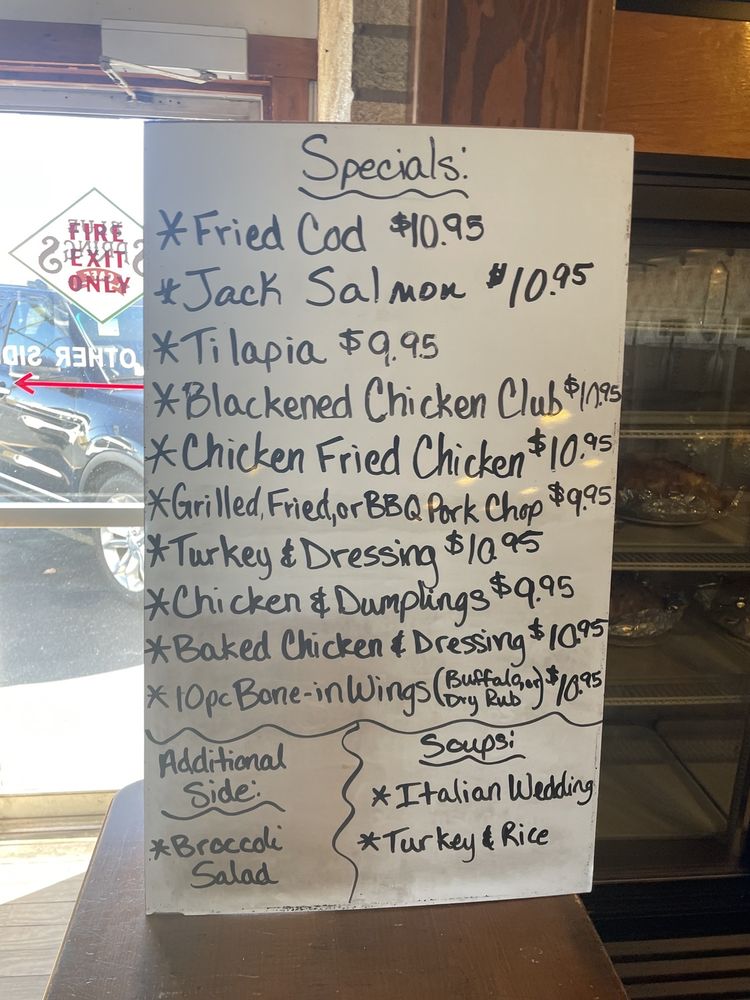 Specials:
*Fried Cod $10.95
*Jack Salmon $10.95
*Tilapia $9.95
*Blackened Chicken Club $10.95
*Chicken Fried Chicken $10.95
*Grilled, Fried, or BBQ Pork Chop $9.95
*Turkey & Dressing $10.95
*Chicken & Dumplings $9.95
*Baked Chicken & Dressing $10.95
*10pc Bone-in Wings (Buffalo, or Dry Rub) $10.95
Additional
Side:
*Broccoli
Salad
Soups:
*Italian Wedding
*Turkey & Rice
FIRE
EXIT
ONLY
OTHER SID